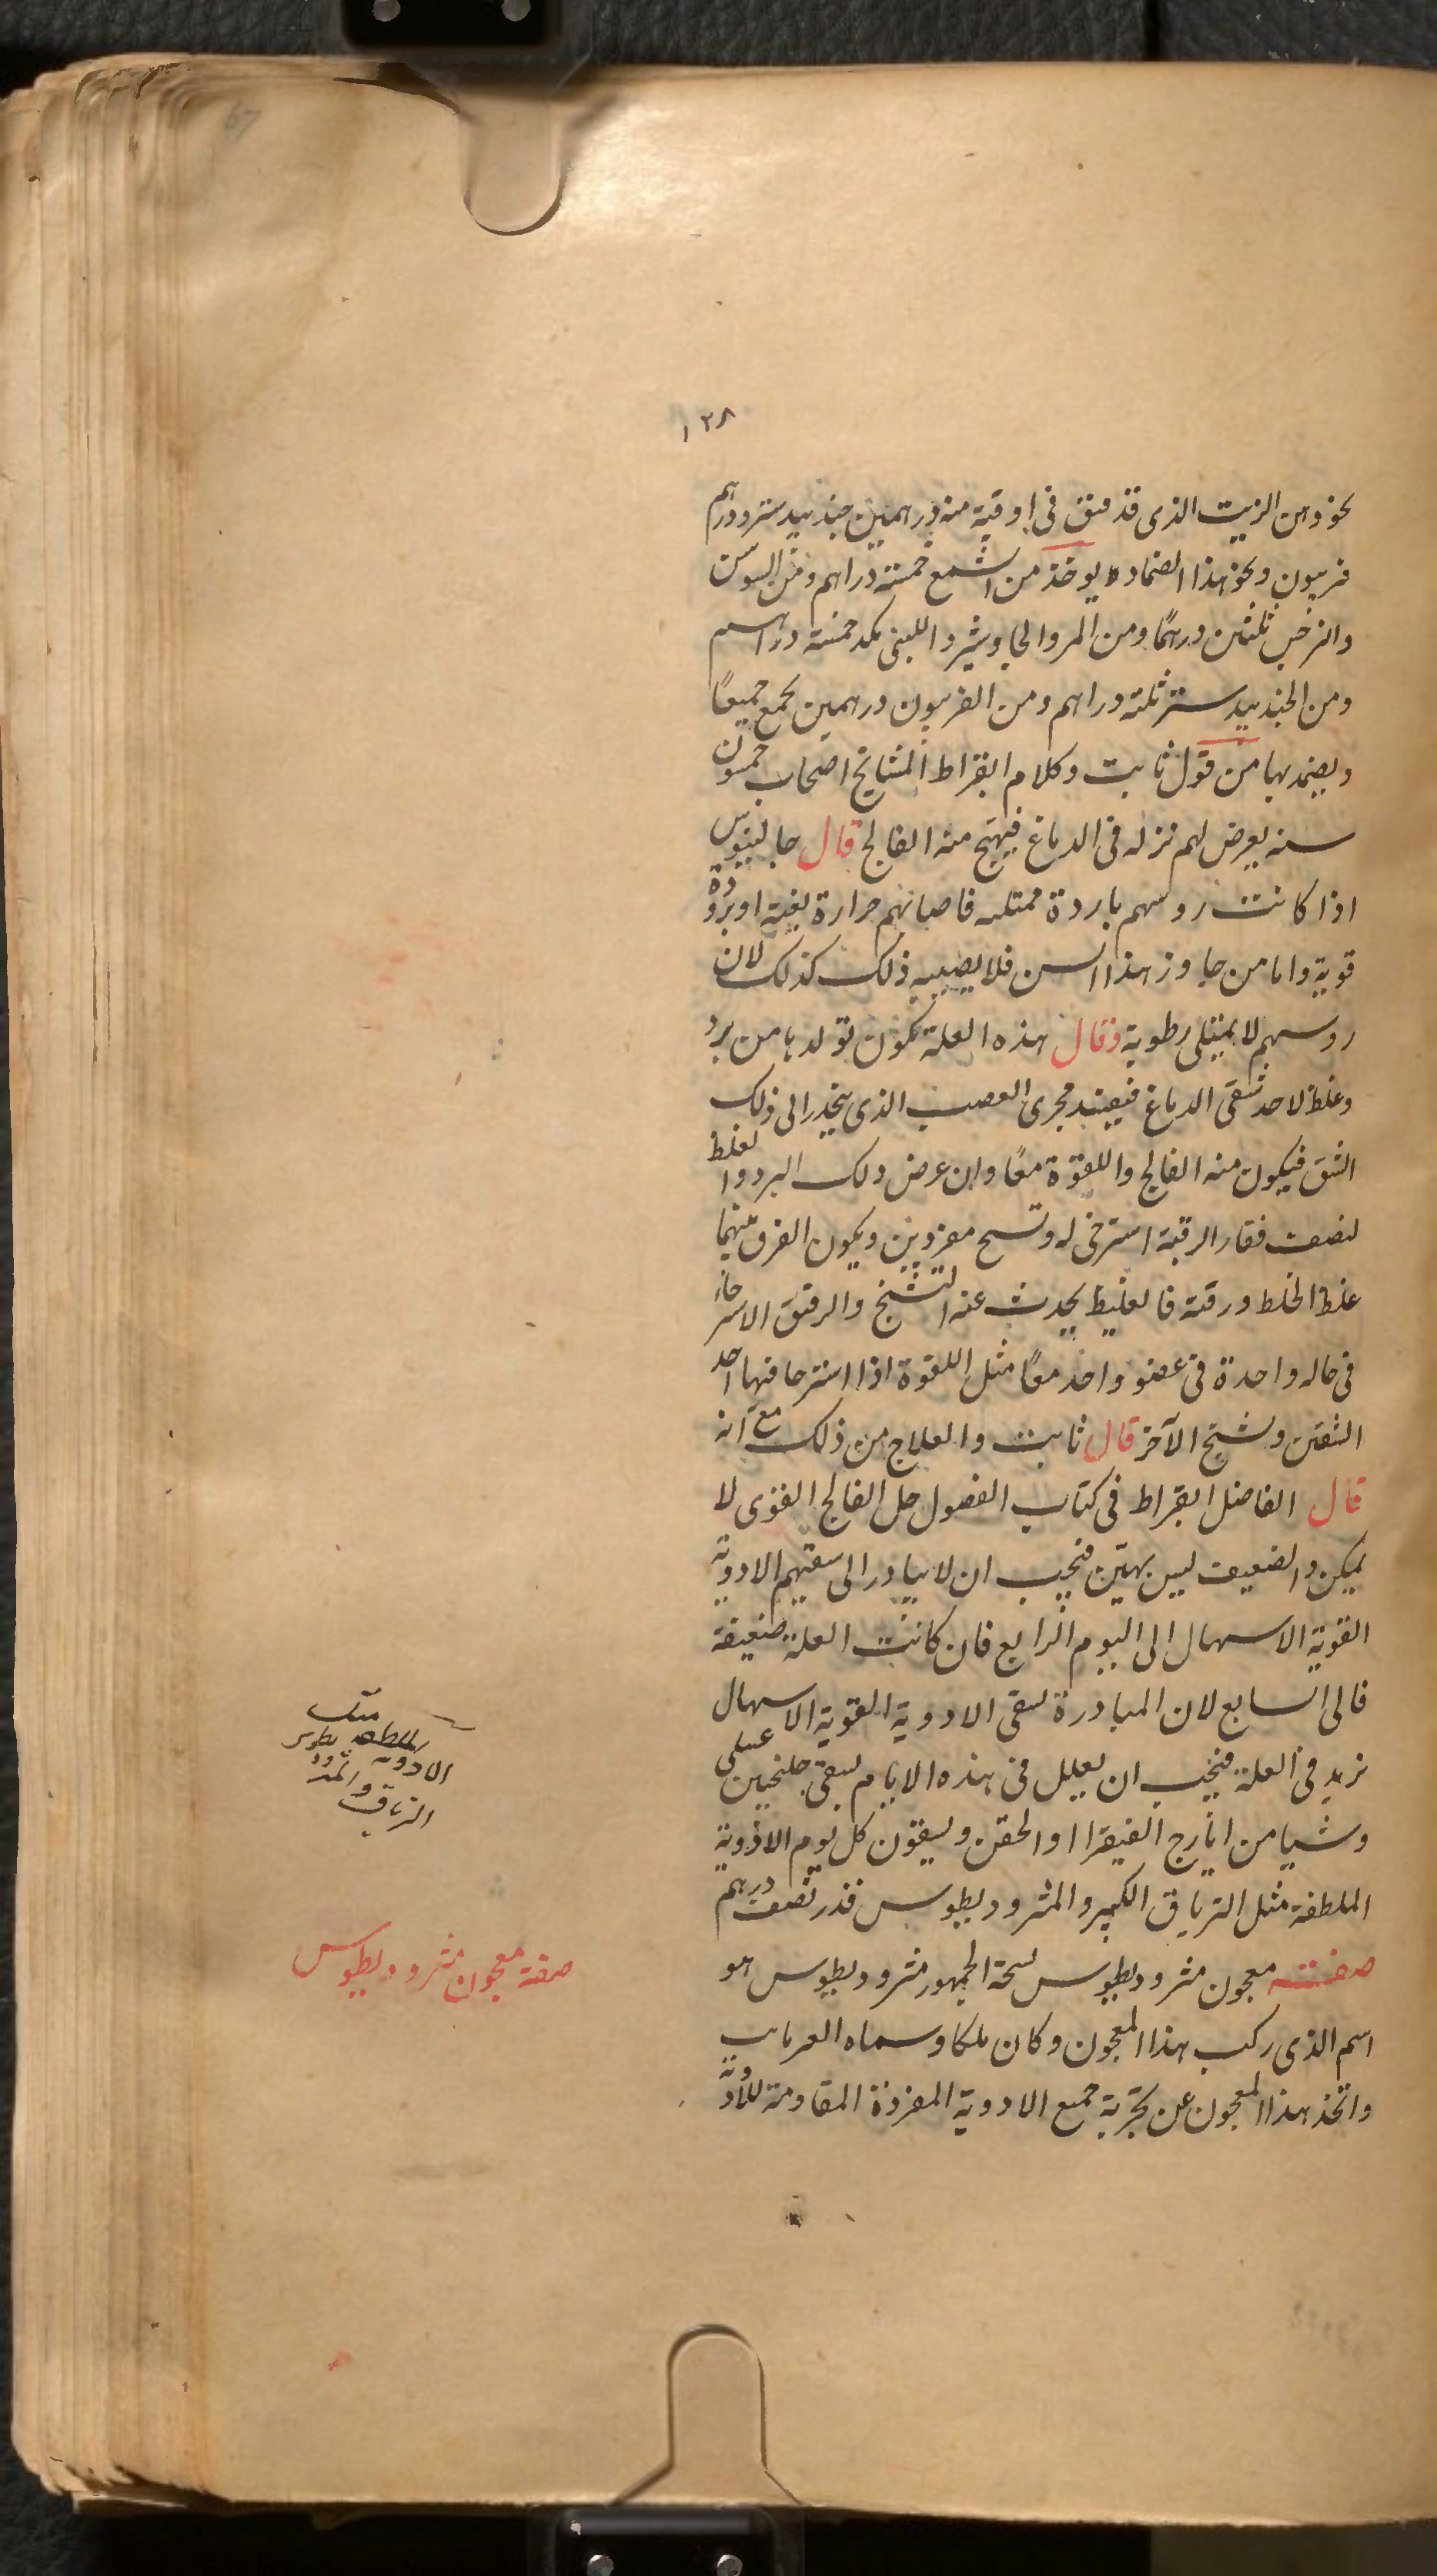 ١٢٨
نحو دهن الزيت الذى قد فتق فى اوقية منه درهمين جندبيدستر ودرهم
فربيون ونحو هذا الضماد يوخذ من الشمع خمسة دراهم ومن السوسن
والنرجس ثلثين درهمًا ومن المر والجاوشير واللبنى مكد خمسة دراهم
ومن الجندبيدستر ثلثه دراهم ومن الفربيون درهمين يجمع جميعًا
ويضمد بها من قول ثابت وكلام ابقراط المشايخ اصحاب خمسون
سنه يعرض لهم نزله فى الدماغ فيهيج منه الفالج قال جالينوس
اذا كانت روسهم باردة ممتليه فاصابهم حرارة بغتة او برودة
قوية واما من جاوز هذا السن فلا يصيبه ذلك كذلك لان
روسهم لا يمتلى رطوبة وقال هذه العلة تكون تولدها من برد
وغلظ لاحد شقى الدماغ فيفسد مجرى العصب الذى ينحدر الى ذلك
الشق فيكون منه الفالج واللقوة معًا وان عرض ذلك البرد والغلظ
لنصف فقار الرقبة استرخى له وتشنج مفردين ويكون الفرق بينهما
غلظ الخلط ورقته فالغليظ يحدث عنه التشنج والرقيق الاسترخاء
فى حاله واحدة فى عضو واحد معًا مثل اللقوة اذا استرخا فيها احد
الشقين وتشنج الآخر قال ثابت والعلاج من ذلك مع انه
قال الفاضل ابقراط فى كتاب الفصول حل الفالج القوى لا
يمكن والضعيف ليس بهيّن فيجب ان لا يبادر الى سقيهم الادوية
القوية الاسهال الى اليوم الرابع فان كانت العلة ضعيفة
فالى السابع لان المبادرة لسقى الادوية القوية الاسهال
تزيد فى العلة فيجب ان يعلل فى هذه الايام بسقى جلنجبين عسلى
وشيا من ايارج الفيقرا او الحقن ويسقون كل يوم الادوية
الملطفة مثل الترياق الكبير والمثروديطوس قدر نصف درهم
صفته معجون مثروديطوس نسخة الجمهور مثروديطوس هو
اسم الذى ركب هذا المعجون وكان ملكا وسماه
واتخذ هذا المعجون عن تجربة جميع الادوية المفردة المقاومة للادوية
الادوية
الترياق
صفة معجون مثروديطوس